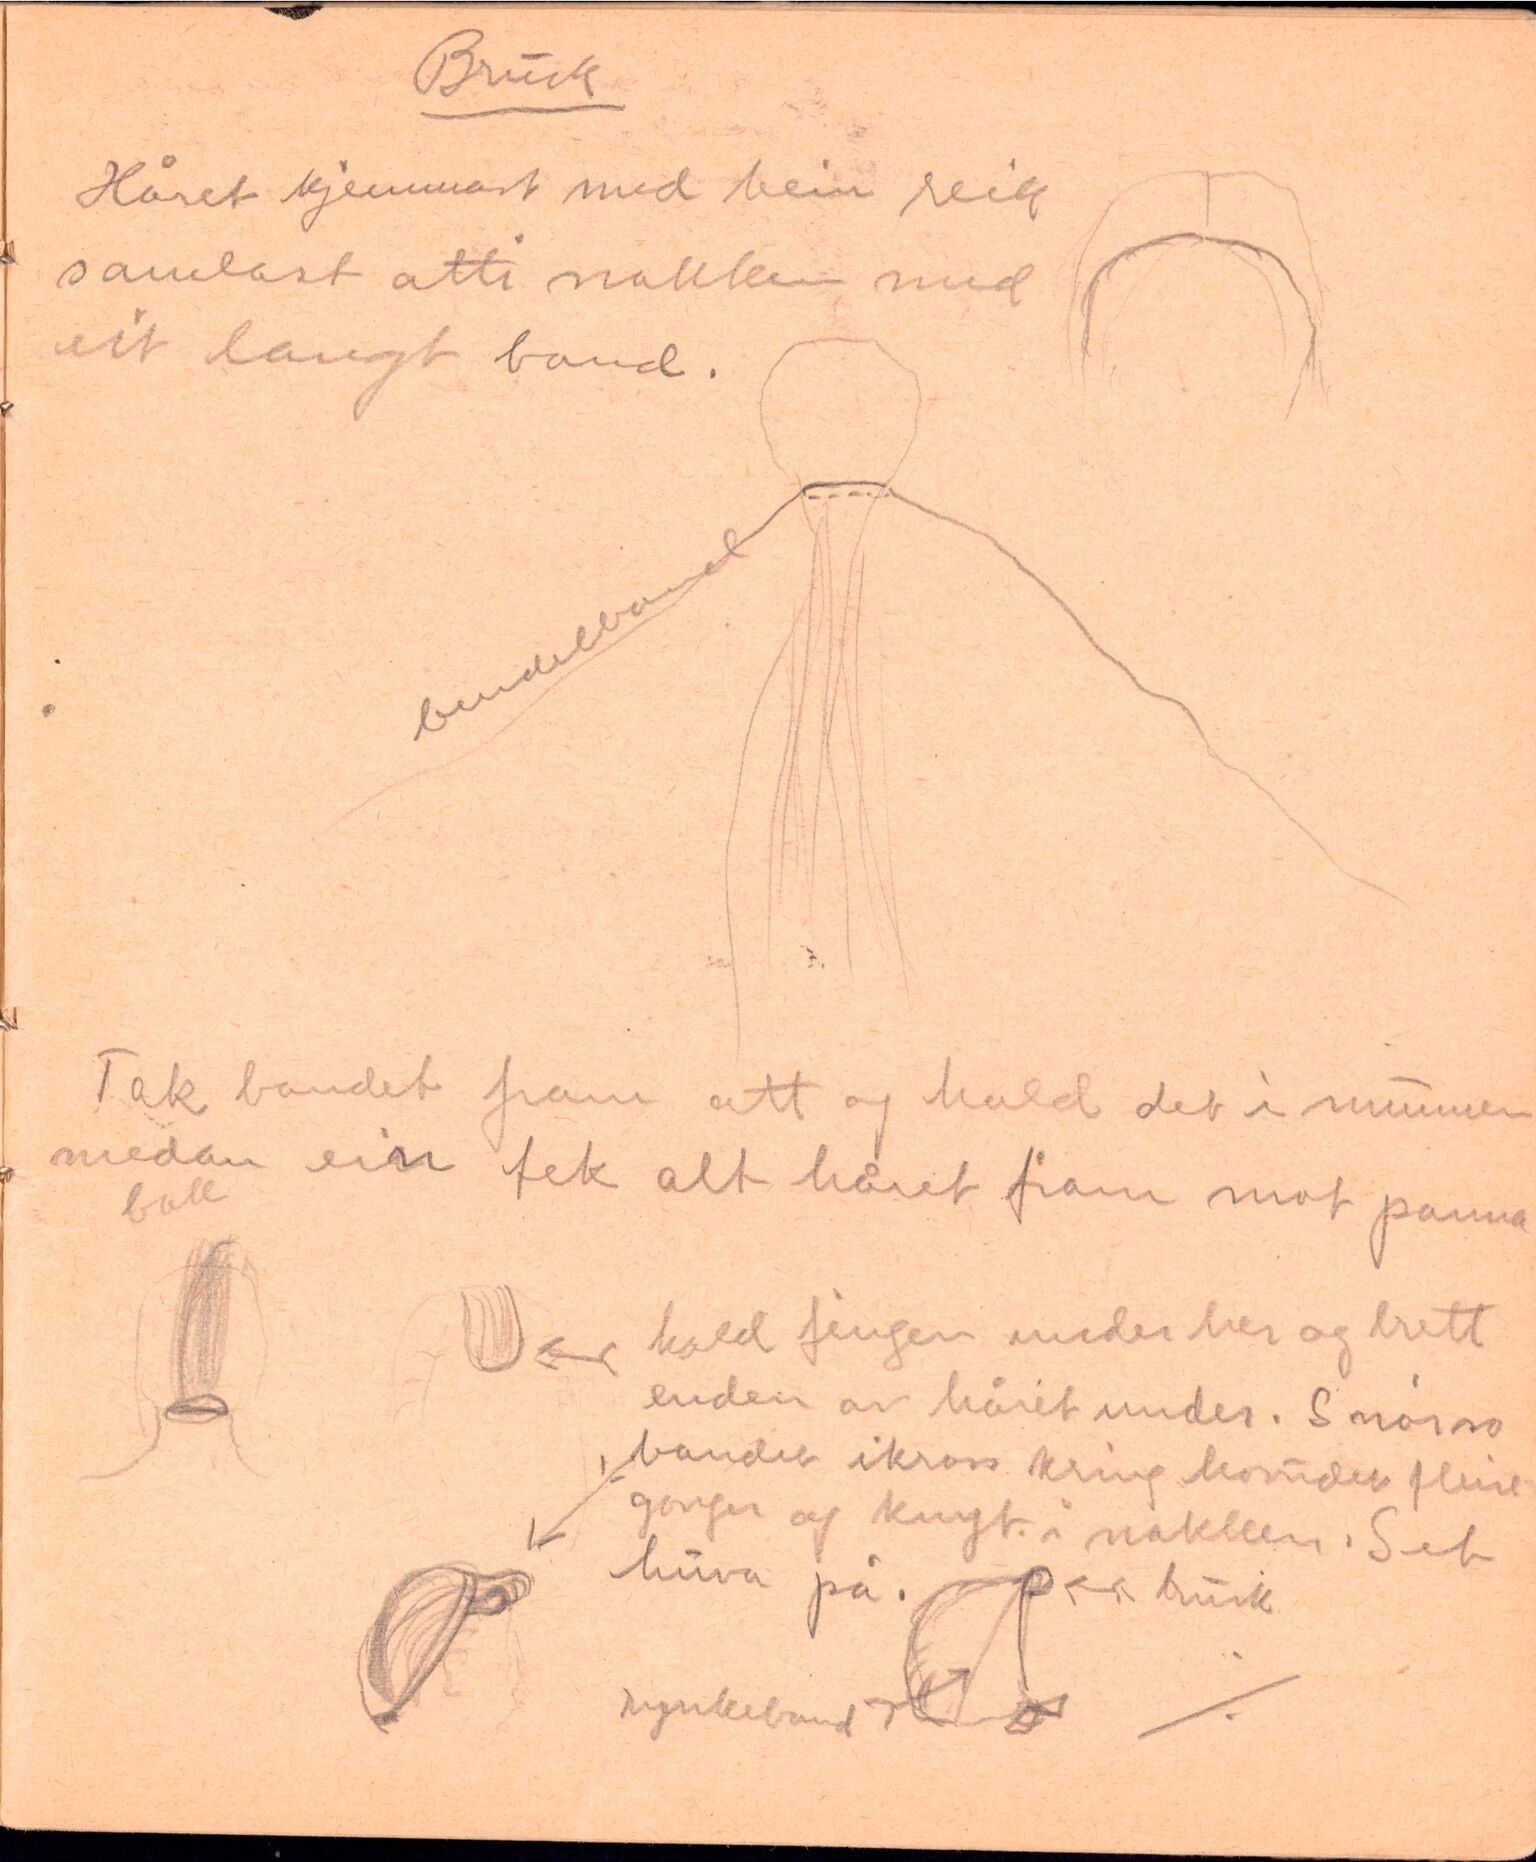 Bruck
Håret kjemmast med bein reik
samlast atti nakken med
eit langt band.
bendelband
Tak bandet fram att og hald det i munnen
medan ein tek alt håret fram mot panna
bak
hald fingen under her og brett
enden av håret under. Snør so
bandet ikross kring hovudet fleire
gonger og knyt i nakken. Set
huva på.
bruk
rynkeband